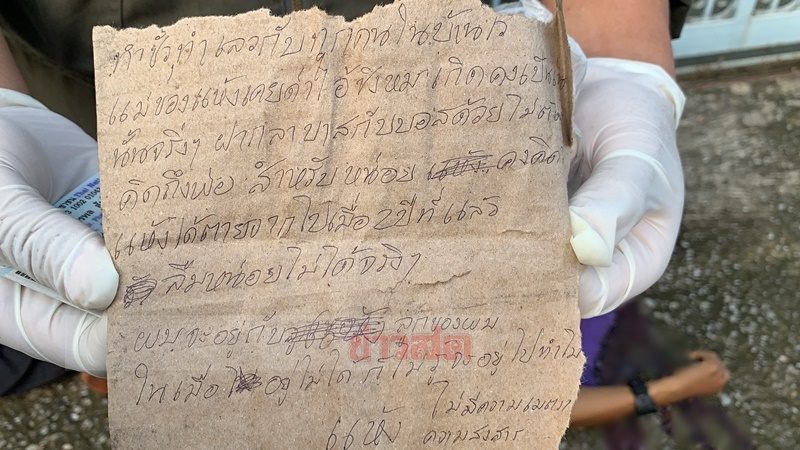 ทำชั่วทำเลวกับทุกคนในบ้าน
แม่ของแห้งเคยด่าไอ้ชิงหมาเกิดคงเป็น
นั้นจริงๆ ฝากลาบาสกับบอสด้วยไม่ต้อง
คิดถึงพ่อ สำหรับหน่อย คงคิด
แห้งได้ตายจากไปเมื่อ 2 ปีที่แล้ว
ลืมหน่อยไม่ได้จริงๆ
ผมจะอยู่กับ ลูกของผม
ในเมื่อ อยู่ไม่ได้ ก็ไม่รู้จะอยู่ไปทำไม
ไม่มีความเมตตา
แห้ง ความสงสาร
ข่าวสด